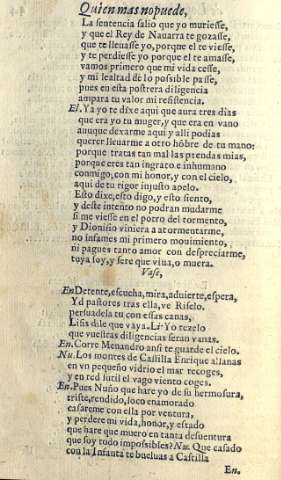 Quien mas no puede,
La sentencia salio que yo muriesse,
y que el Rey de Nauarra te gozasse,
que te lleuasse yo, porque el te viesse,
y te perdiesse yo porque el te amasse,
vamos primero que mi vida cesse,
y mi lealtad de lo possible passe,
pues en esta postrera diligencia
ampara tu valor mi resistencia.
El. Ya yo te dixe aqui que aura tres dias
que era yo tu muger, y que era en vano
aunque dexarme aqui y alli podias
querer lleuarme a otro hõbre de tu mano:
porque tratas tan mal las prendas mias,
porque eres tan ingrato e inhumano
conmigo, con mi honor, y con el cielo,
aqui de tu rigor injusto apelo.
Esto dixe, esto digo, y esto siento,
y deste intento no podran mudarme
si me viesse en el potro del tormento,
y Dionisio viniera a atormentarme,
no infames mi primero mouimiento,
ni pagues tanto amor con despreciarme,
tuya soy, y sere que viua, o muera.
Vase,
En Detente, escucha, mira, aduierte, espera,
Yd pastores tras ella, ve Riselo.
persuadela tu con essas canas,
Lisa dile que vaya. Li. Yo rezelo
que vuestras diligencias seran vanas.
En. Corre Menandro ansi te guarde el cielo.
Nu. Los montes de Castilla Enrique allanas
en vn pequeño vidrio el mar recoges,
y en red sutil el vago viento coges.
En. Pues Nuño que hare yo de su hermosura,
triste, rendido, loco enamorado
casareme con ella por ventura,
y perdere mi vida, honor, y estado
que hare que muero en tanta desuentura
que soy todo impossibles? Nu. Que casado
con la Infanta te bueluas a Castilla
En.